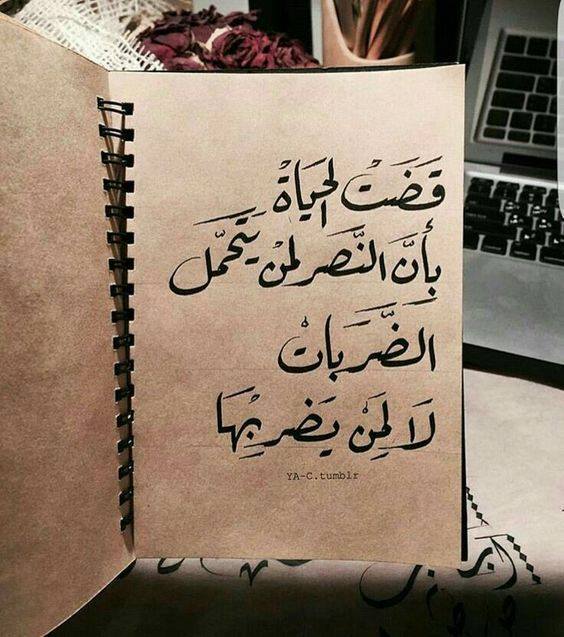 قَضَت الحَيَاة
بِأَنَّ النَّصر لمَن يَتَحَمّل
الضَّرَبَات
لَا لِمَنْ يَضرِبُهَا
YA-C.tumblr